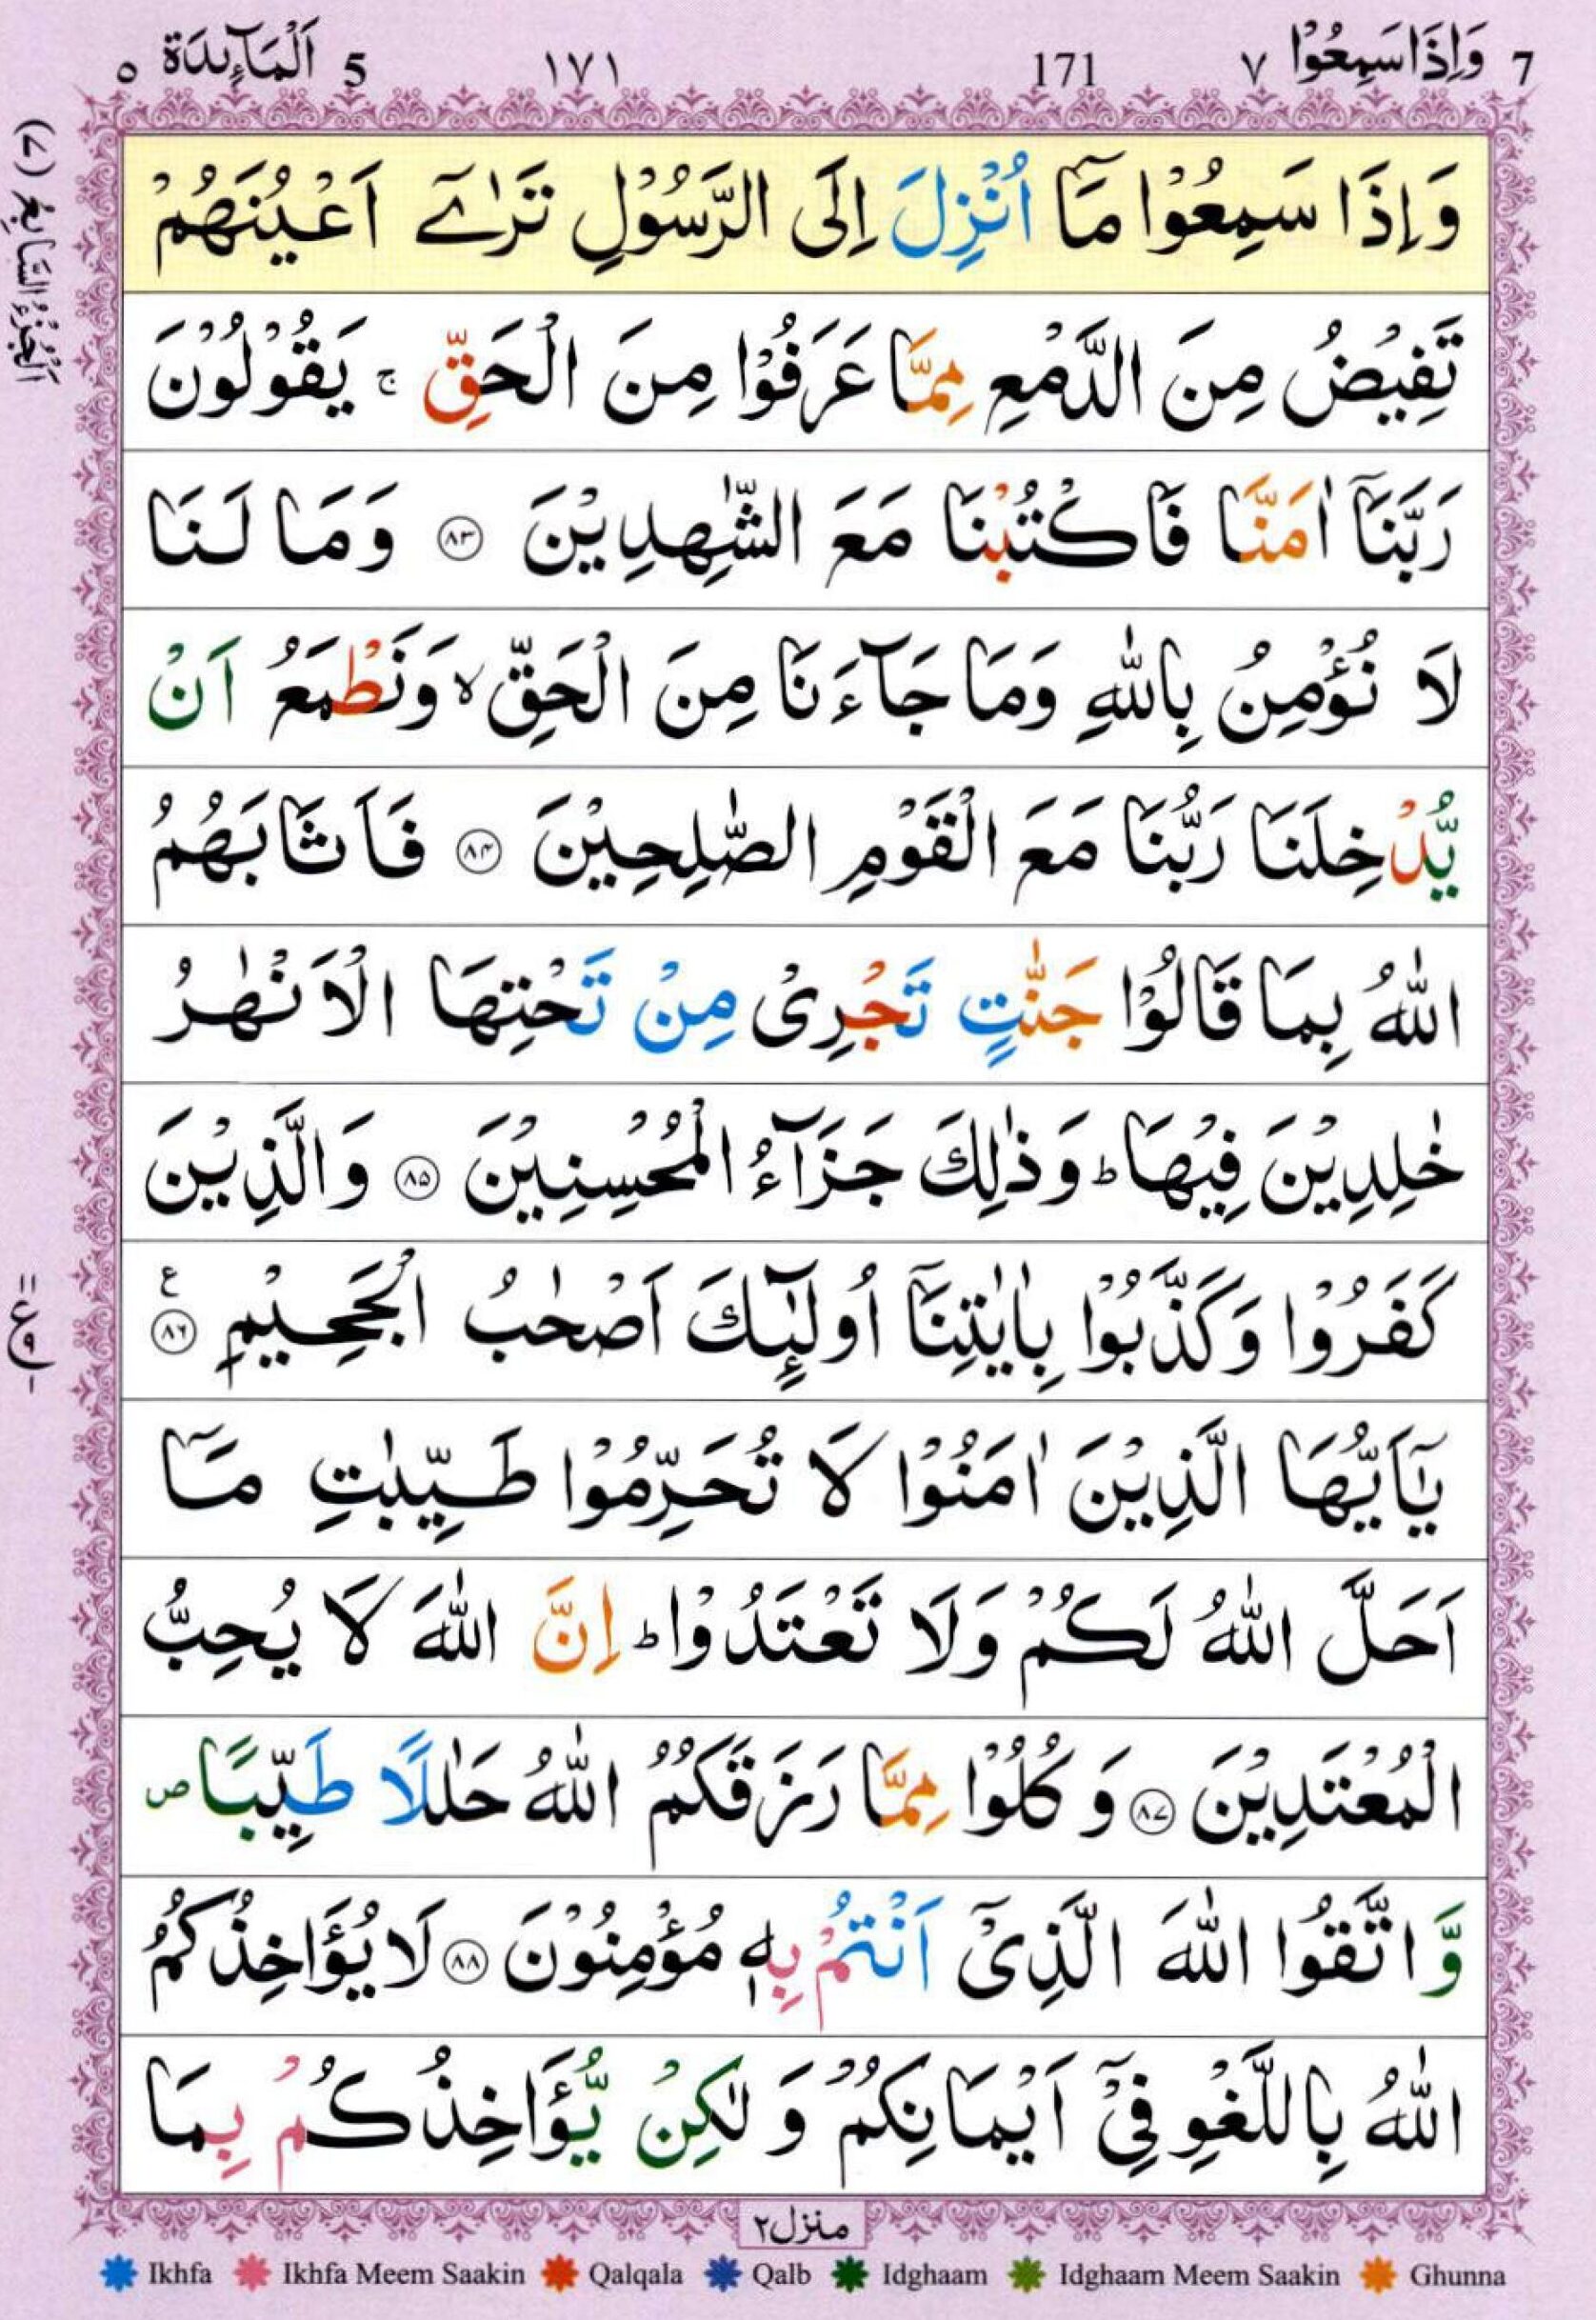 7 وَاِذَا سَمِعُوْا ٧ 171 ١٧١ 5 اَلْمَآئِدَة ٥
وَاِذَا سَمِعُوْا مَاۤ اُنْزِلَ اِلَى الرَّسُوْلِ تَرٰۤى اَعْيُنَهُمْ
تَفِيْضُ مِنَ الدَّمْعِ مِمَّا عَرَفُوْا مِنَ الْحَقِّ ۚ يَقُوْلُوْنَ
رَبَّنَاۤ اٰمَنَّا فَاكْتُبْنَا مَعَ الشّٰهِدِيْنَ ۝٨٣ وَمَا لَنَا
لَا نُؤْمِنُ بِاللّٰهِ وَمَا جَآءَنَا مِنَ الْحَقِّ ۙ وَنَطْمَعُ اَنْ
يُّدْخِلَنَا رَبُّنَا مَعَ الْقَوْمِ الصّٰلِحِيْنَ ۝٨٤ فَاَثَابَهُمُ
اللّٰهُ بِمَا قَالُوْا جَنّٰتٍ تَجْرِىْ مِنْ تَحْتِهَا الْاَنْهٰرُ
خٰلِدِيْنَ فِيْهَا ؕ وَذٰلِكَ جَزَآءُ الْمُحْسِنِيْنَ ۝٨٥ وَالَّذِيْنَ
كَفَرُوْا وَكَذَّبُوْا بِاٰيٰتِنَاۤ اُولٰٓئِكَ اَصْحٰبُ الْجَحِيْمِ ۝٨٦ ع
يٰۤاَيُّهَا الَّذِيْنَ اٰمَنُوْا لَا تُحَرِّمُوْا طَيِّبٰتِ مَاۤ
اَحَلَّ اللّٰهُ لَكُمْ وَلَا تَعْتَدُوْا ؕ اِنَّ اللّٰهَ لَا يُحِبُّ
الْمُعْتَدِيْنَ ۝٨٧ وَ كُلُوْا مِمَّا رَزَقَكُمُ اللّٰهُ حَلٰلًا طَيِّبًا ص
وَّ اتَّقُوا اللّٰهَ الَّذِىْۤ اَنْتُمْ بِهٖ مُؤْمِنُوْنَ ۝٨٨ لَا يُؤَاخِذُكُمُ
اللّٰهُ بِاللَّغْوِ فِىْۤ اَيْمَانِكُمْ وَ لٰكِنْ يُّؤَاخِذُكُمْ بِمَا
منزل ٢
Ikhfa Ikhfa Meem Saakin Qalqala Qalb Idghaam Idghaam Meem Saakin Ghunna
اَلْجُزْءُ السَّابِعُ (٧)